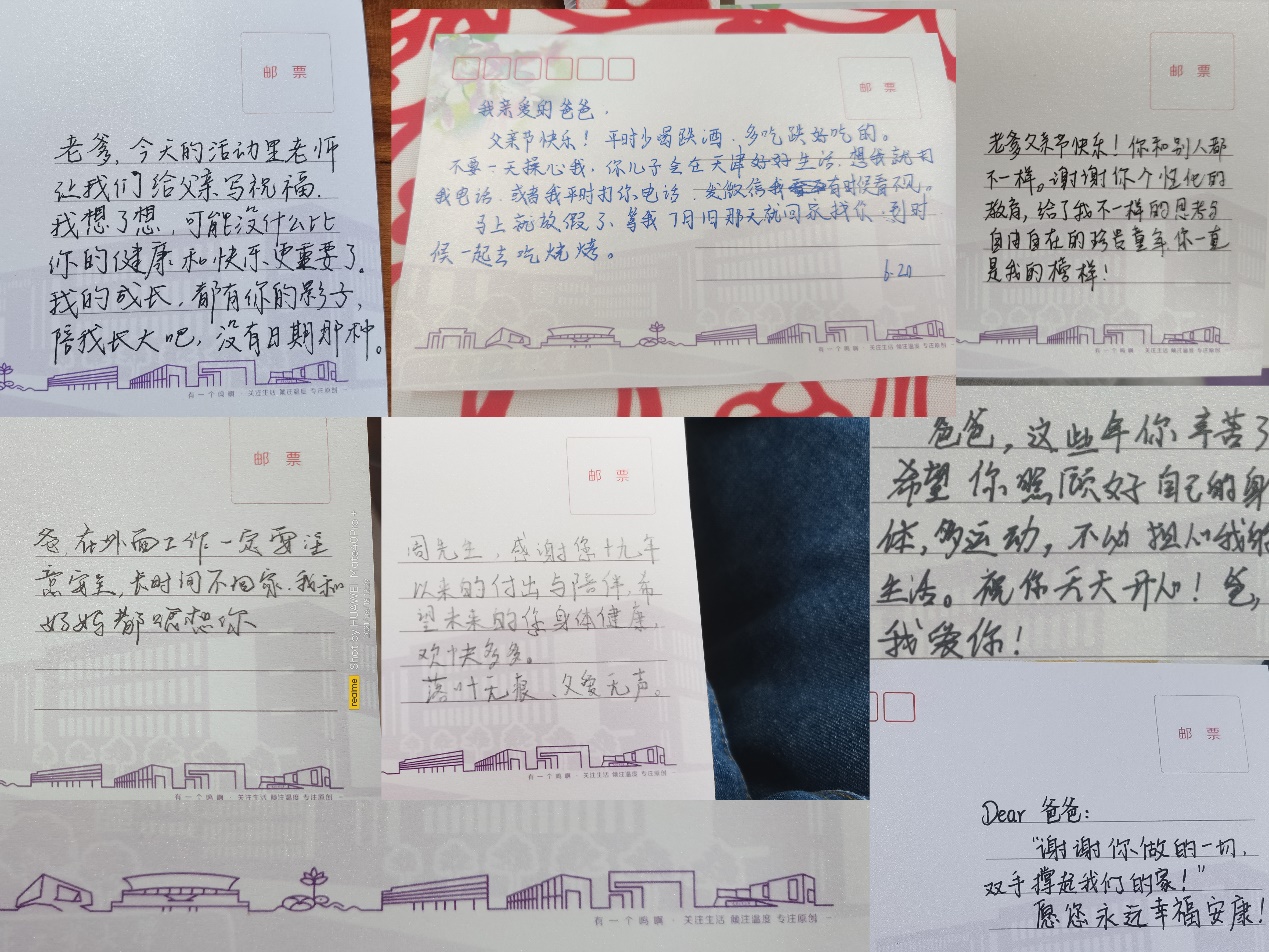 邮 票
老爹,今天的活动里老师
让我们给父亲写祝福.
我想了想,可能没什么比
你的健康和快乐更重要了.
我的成长,都有你的影子,
陪我长大吧,没有日期那种。
有一个鸣啊·关注生活 倾注温度 专注原创
邮 票
我亲爱的爸爸,
父亲节快乐!平时少喝跌酒,多吃跌好吃的。
不要一天操心我,你儿子会在天津好好生活.想我就用
我电话,或者我平时打你电话,发微信我有时候看不见。
马上就放假了,等我7月1日那天就回家找你,到时
候一起去吃烧烤。
6.20
有一个鸣啊·关注生活 倾注温度 专注原创
邮 票
老爹父亲节快乐!你和别人都
不一样。谢谢你个性化的
教育,给了我不一样的思考与
自由自在的珍贵童年你一直
是我的榜样!
有一个鸣啊·关注生活 倾注温度 专注原创
邮 票
爸,在外面工作一定要注
意安全,长时间不回家.我和
妈妈都很想你
realme Shot by HUAWEI
有一个鸣啊·关注生活 倾注温度 专注原创
邮 票
周先生,感谢您十九年
以来的付出与陪伴,希
望未来的您身体健康,
欢快多多。
落叶无痕、父爱无声。
有一个鸣啊·关注生活 倾注温度 专注原创
爸爸,这些年你辛苦了
希望你照顾好自己的身
体,多运动,不必担心我的
生活。祝你天天开心!爸,
我爱你!
邮 票
Dear 爸爸:
"谢谢你做的一切,
双手撑起我们的家!"
愿您永远幸福安康!
有一个鸣啊·关注生活 倾注温度 专注原创